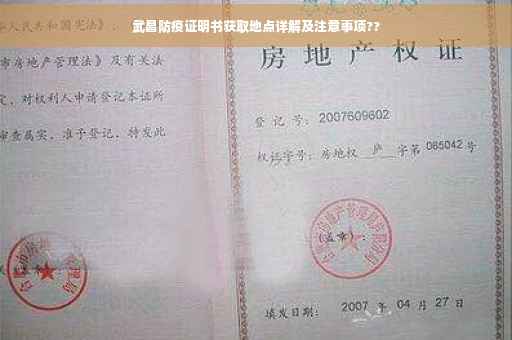 武昌防疫证明书获取地点详解及注意事项??
华人民共和国宪法》、
市房地产管理法》及有关法
定，对权利人申请登记本证所
审查属实，准予登记，特发此
房地产权证
登记号：2007609602
权证字号：房地权 庐 字第 065042 号
(盖章)：
填发日期：2007 年 04 月 27 日